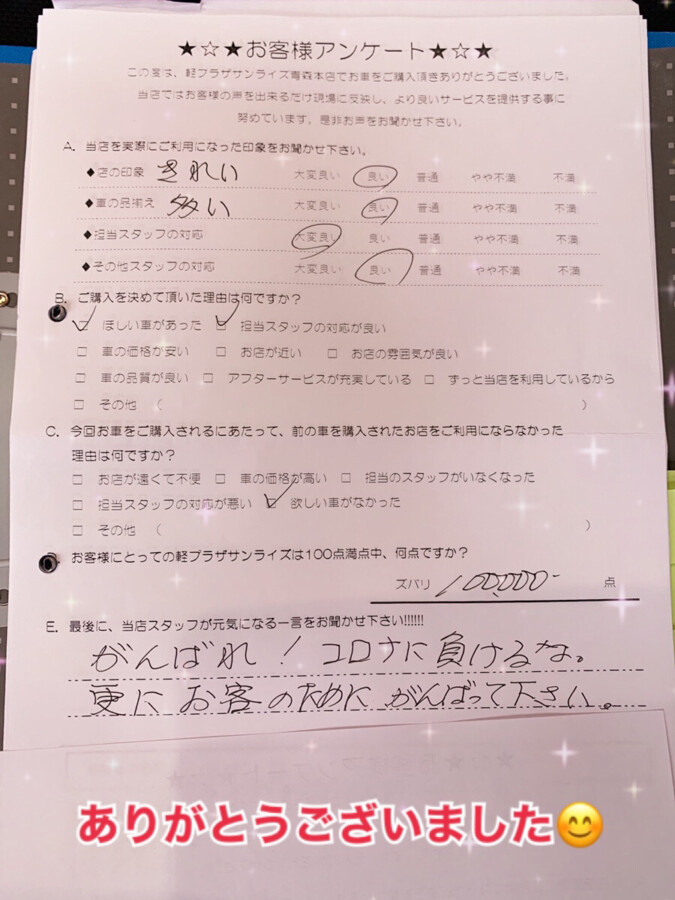 ★☆★お客様アンケート★☆★
この度は、軽プラザサンライズ青森本店でお車をご購入頂きありがとうございました。
当店ではお客様の声を出来るだけ現場に反映し、より良いサービスを提供する事に
努めています。是非お声をお聞かせ下さい。
A. 当店を実際にご利用になった印象をお聞かせ下さい。
◆店の印象 きれい 大変良い 良い 普通 やや不満 不満
◆車の品揃え 多い 大変良い 良い 普通 やや不満 不満
◆担当スタッフの対応 大変良い 良い 普通 やや不満 不満
◆その他スタッフの対応 大変良い 良い 普通 やや不満 不満
B. ご購入を決めて頂いた理由は何ですか？
☑ ほしい車があった ☑ 担当スタッフの対応が良い
□ 車の価格が安い □ お店が近い □ お店の雰囲気が良い
□ 車の品質が良い □ アフターサービスが充実している □ ずっと当店を利用しているから
□ その他 （ ）
C. 今回お車をご購入されるにあたって、前の車を購入されたお店をご利用にならなかった
理由は何ですか？
□ お店が遠くて不便 □ 車の価格が高い □ 担当のスタッフがいなくなった
□ 担当スタッフの対応が悪い ☑ 欲しい車がなかった
□ その他 （ ）
お客様にとっての軽プラザサンライズは100点満点中、何点ですか？
ズバリ 100,000- 点
E. 最後に、当店スタッフが元気になる一言をお聞かせ下さい!!!!!!
がんばれ！コロナに負けるな。
更にお客のためにがんばって下さい。
ありがとうございました😊